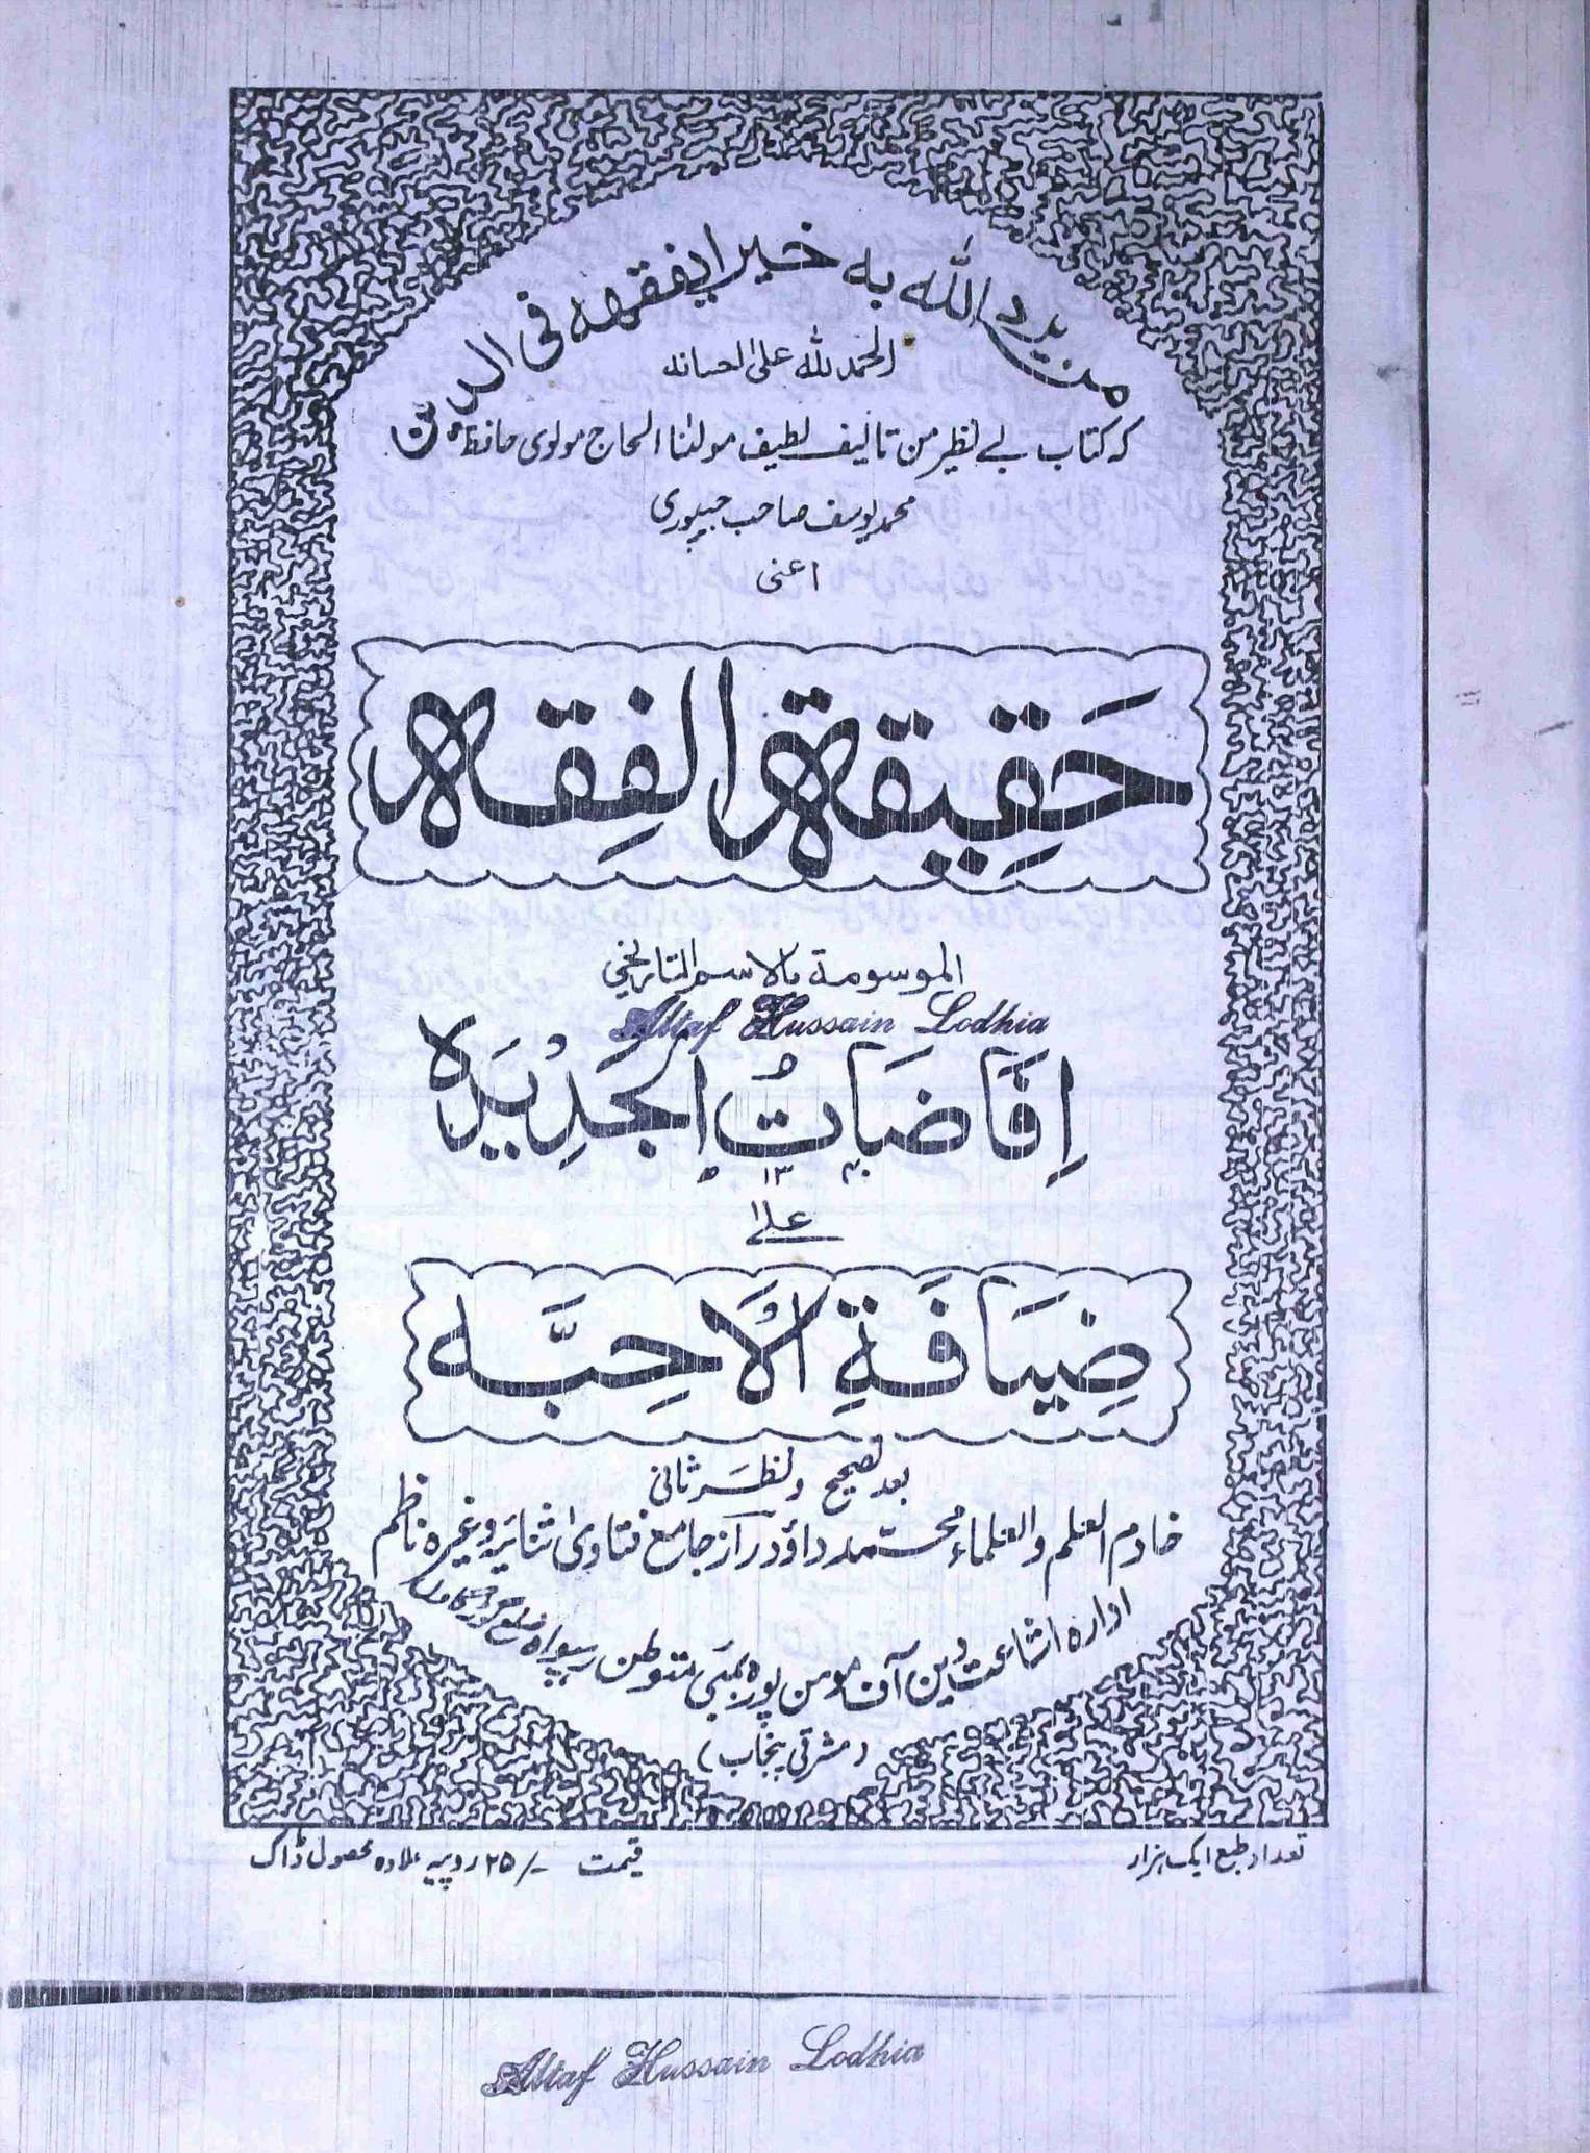 من يرد الله به خيرا يفقهه فى الدين
الحمد لله على احسانه
کہ کتاب بے نظیر من تالیف لطیف مولٰنا الحاج مولوی حافظ
محمد یوسف صاحب جیپوری
اعنی
حَقِيقَة الفِقه
الموسومة بالاسم التاریخی
Altaf Hussain Lodhia
اِفَاضَاتُ الجَدِيْدَه
۱۳
علیٰ
ضِيَافَةِ الْاَحِبَّه
بعد تصحیح و نظر ثانی
خادم العلم والعلماء محمد داؤد راز جامع فتاویٰ ثنائیہ وغیرہ ناظم
ادارہ اشاعت دین آف مومن پورہ بمبئی متوطن رہپواہ ضلع گوڑگاواں
(مشرقی پنجاب)
تعداد طبع ایک ہزار
قیمت -/۲۵ روپیہ علاوہ محصول ڈاک
Altaf Hussain Lodhia